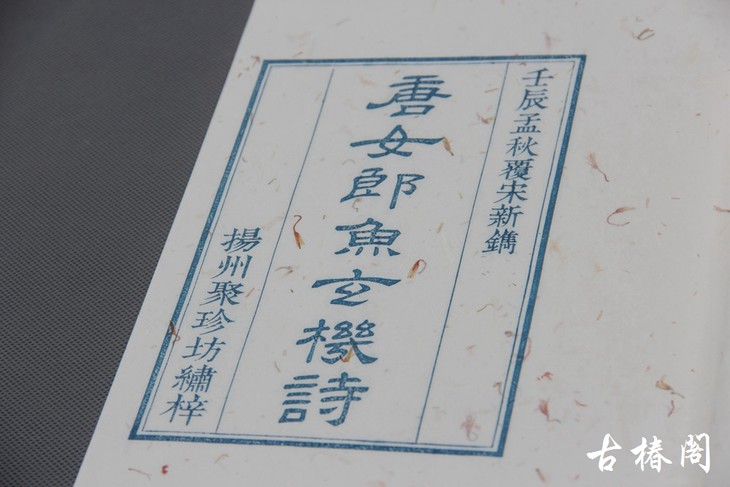 壬辰孟秋覆宋新鐫
唐女郎魚玄機詩
揚州聚珍坊繡梓
古椿阁